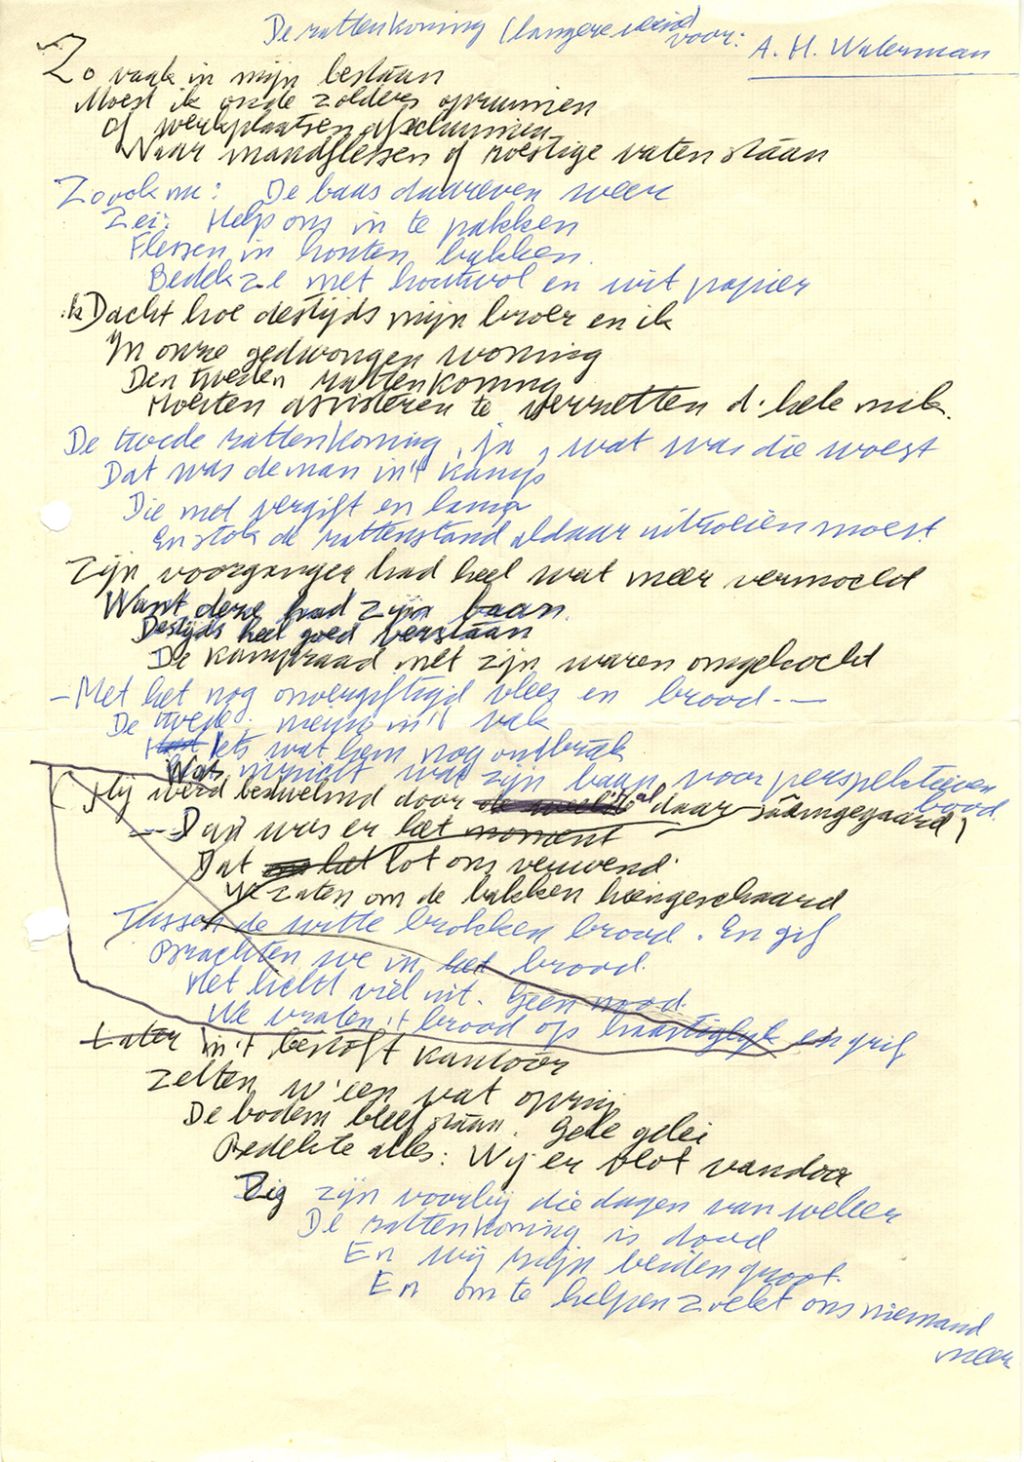 De rattenkoning (langere versie)
voor: A. H. Waterman
Zo vaak in mijn bestaan
Moest ik oude zolders opruimen
Of werkplaatsen afschuimen
Waar mandflessen of roestige vaten staan
Zo ook nu: De baas daareven weer
Zei: Help ons in te pakken
Flessen in houten bakken.
Bedek ze met houtwol en wit papier
Ik Dacht hoe destijds mijn broer en ik
In onze gedwongen woning
Den tweeden rattenkoning
Moesten assisteren te verzetten d. hele mik.
De tweede rattenkoning, ja, wat was die woest
Dat was de man in 't kamp
Die met vergift en lamp
En stok de rattenstand aldaar uitroeien moest.
Zijn voorganger had heel wat meer vermocht
Want deze had zijn baan
Destijds heel goed verstaan
De kampraad met zijn waren omgekocht
— Met het nog onvergiftigd vlees en brood. —
De twede: nieuw in 't vak
Iets wat hem nog ontbrak
Was inzicht wat zijn baan voor perspectieven bood.
(Hij werd bedwelmd door al daar saamgegaard)
Dan was er het moment
Dat het lot ons verwend.
We zaten om de bakken heengeschaard
Tussen de witte brokken brood. En gif
Brachten we in het brood.
Het licht viel uit. Geen nood.
We vraten 't brood op haastiglijk en grif
Later in 't bestoft kantoor
Zetten w' een vat opzij
De bodem bleef staan. Gele gelei
Bedekte alles: Wij er vlot vandoor
Zij zijn voorbij die dagen van weleer
De rattenkoning is dood
En wij zijn beiden groot.
En om te helpen zoekt ons niemand
meer